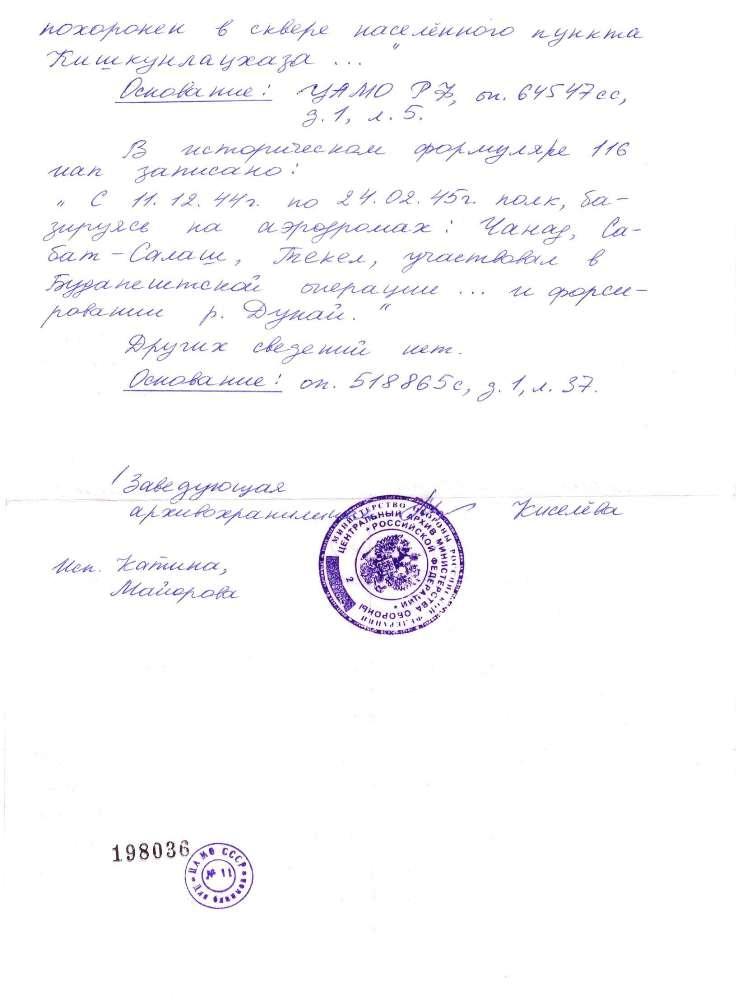 похоронен в сквере населённого пункта
Кишкунлацхаза ... "
Основание: ЦАМО РФ, оп. 64547сс,
д.1, л.5.
В историческом формуляре 116
иап записано:
„ С 11.12.44г. по 24.02.45г. полк, ба-
зируясь на аэродромах: Чанад, Са-
бат-Салаш, Текел, участвовал в
Будапештской операции ... и форси-
ровании р. Дунай."
Других сведений нет.
Основание: оп. 518865с, д.1, л.37.
Заведующая
архивохранилищ
Киселёва
Исп. Катина,
Майорова
МИНИСТЕРСТВО ОБОРОНЫ РОССИЙСКОЙ ФЕДЕРАЦИИ
ЦЕНТРАЛЬНЫЙ АРХИВ МИНИСТЕРСТВА ОБОРОНЫ
РОССИЙСКОЙ ФЕДЕРАЦИИ
2
198036
ЦАМО СССР
№ 11